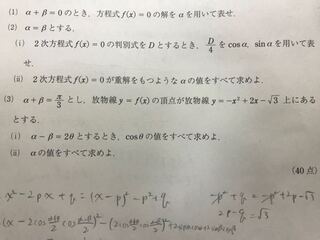 (1) α+β=0のとき，方程式 f(x)=0 の解をαを用いて表せ．
(2) α=βとする．
(i) 2次方程式 f(x)=0 の判別式をDとするとき，D/4 を cosα, sinα を用いて表
せ．
(ii) 2次方程式 f(x)=0 が重解をもつようなαの値をすべて求めよ．
(3) α+β=π/3 とし，放物線 y=f(x) の頂点が放物線 y=-x²+2x-√3 上にある
とする．
(i) α-β=2θとするとき，cosθの値をすべて求めよ．
(ii) αの値をすべて求めよ．
(40点)
x²-2px+q=(x-p)²-p²+q
-p²+q=-p²+2p-√3
2p-q=√3
(x-2cos α+β/2 cos α-β/2)²-(2cos α+β/2 cos α-β/2)²